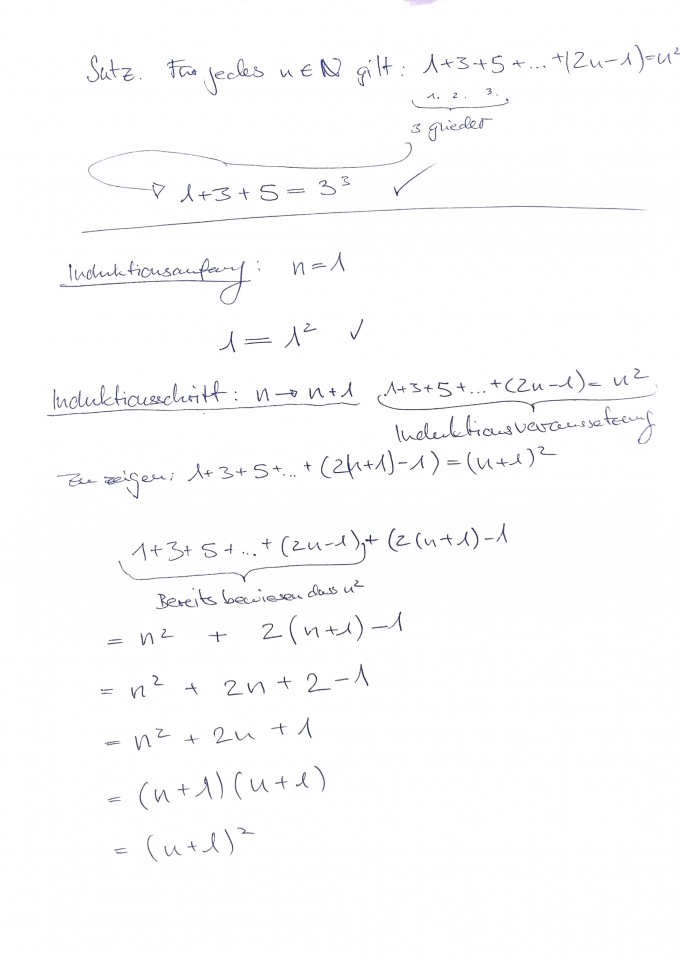 Satz. Für jedes n ∈ ℕ gilt: 1+3+5+...+(2n-1)=n²
1. 2. 3.
3 glieder
1+3+5 = 3³ ✓
Induktionsanfang: n=1
1 = 1² ✓
Induktionsschritt: n → n+1 1+3+5+...+(2n-1)= n²
Induktionsvoraussetzung
Zu zeigen: 1+3+5+...+(2(n+1)-1)=(n+1)²
1+3+5+...+(2n-1)+(2(n+1)-1
Bereits bewiesen dass n²
= n² + 2(n+1)-1
= n² + 2n+2-1
= n² + 2n +1
= (n+1)(n+1)
= (n+1)²